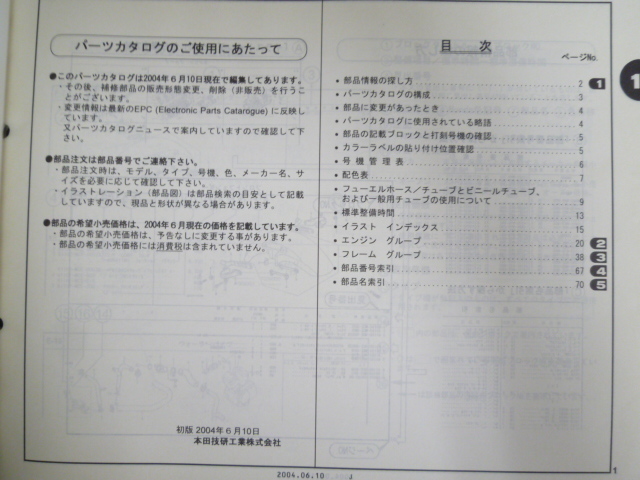 パーツカタログのご使用にあたって
●このパーツカタログは2004年6月10日現在で編集してあります。
・その後、補修部品の販売形態変更、削除（非販売）を行うこ
とがございます。
・変更情報は最新のEPC (Electronic Parts Catarogue) に反映し
ています。
又パーツカタログニュースで案内していますので確認して下
さい。
●部品注文は部品番号でご連絡下さい。
・部品注文時は、モデル、タイプ、号機、色、メーカー名、サ
イズを必要に応じて確認して下さい。
・イラストレーション（部品図）は部品検索の目安として記載
しますので、現品と形状が異なる場合があります。
●部品の希望小売価格は、2004年6月現在の価格を記載しています。
・部品の希望小売価格は、予告なしに変更する事があります。
・部品の希望小売価格には消費税は含まれていません。
初版 2004年6月10日
本田技研工業株式会社
目 次
ページNo.
• 部品情報の探し方 2 1
• パーツカタログの構成 3
• 部品に変更があったとき 4
• パーツカタログに使用されている略語 5
• 部品の記載ブロックと打刻号機の確認 5
• カラーラベルの貼り付け位置確認 5
• 号機管理表 6
• 配色表 7
• フューエルホース／チューブとビニールチューブ、
および一般用チューブの使用について 9
• 標準整備時間 13
• イラスト インデックス 15
• エンジン グループ 20 2
• フレーム グループ 38 3
• 部品番号索引 67 4
• 部品名索引 70 5
1
2004.06.10
1